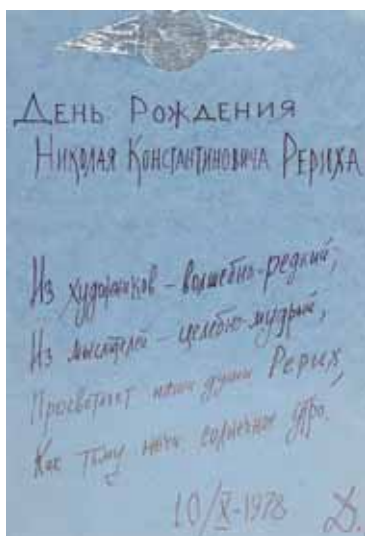 День Рождения
Николая Константиновича Рериха
Из художников – волшебно-редкий,
Из мыслителей – целебно-мудрый,
Просветляет наши души Рерих,
Как тьму ночи солнечное утро.
10/X-1978 Д.